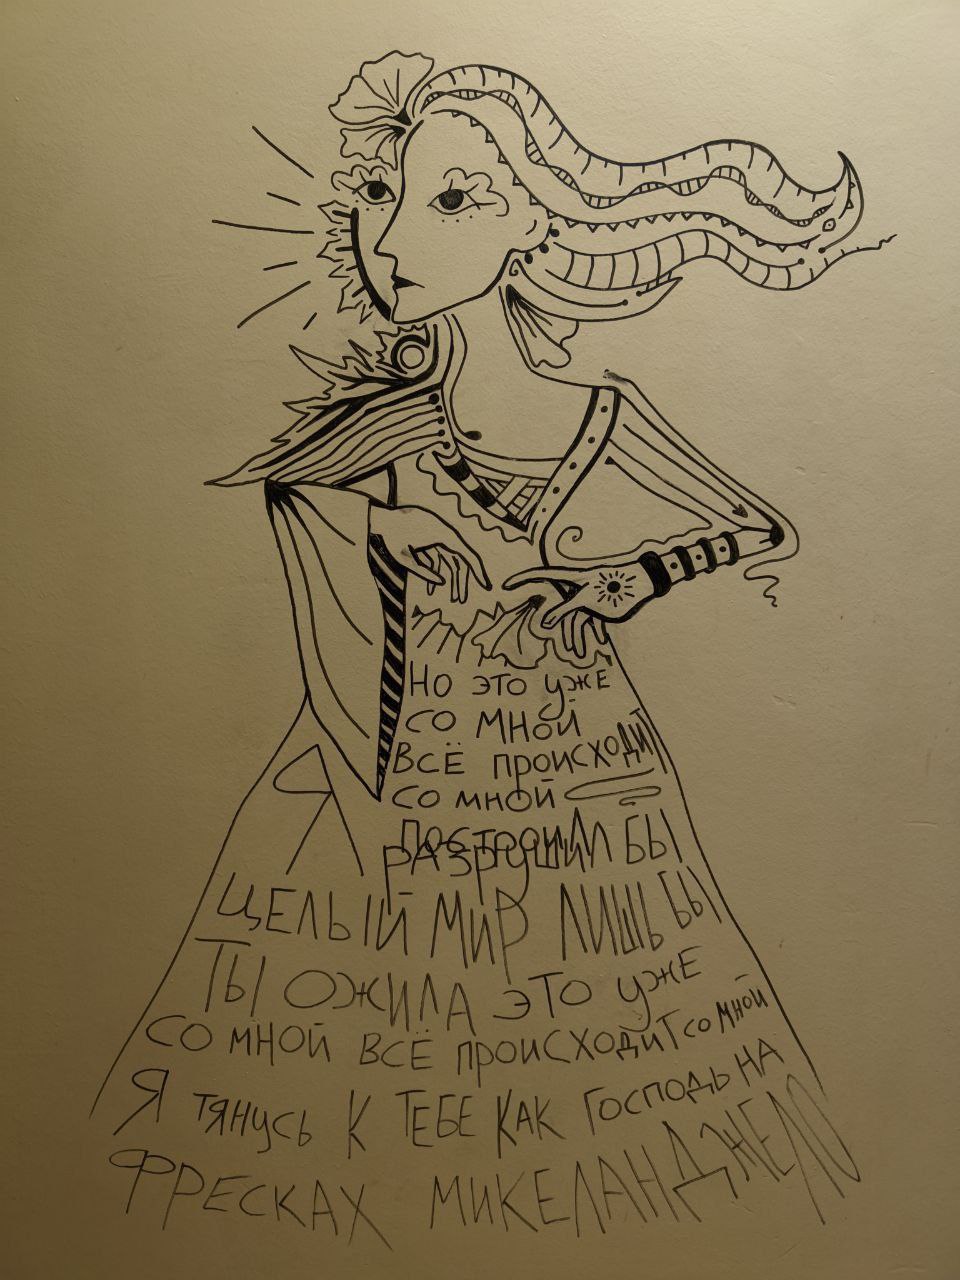 Но это уже
со мной
всё происходит
со мной
Я
разрушил бы
целый мир лишь бы
ты ожила это уже
со мной всё происходит со мной
Я тянусь к тебе как Господь на
фресках Микеланджело